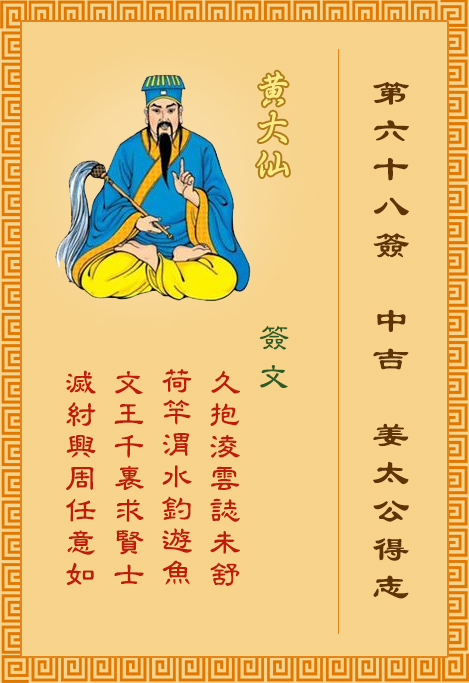 第六十八簽 中吉 姜太公得志
黄大仙
簽文
久抱淩雲誌未舒
荷竿渭水釣遊魚
文王千裏求賢士
滅紂興周任意如